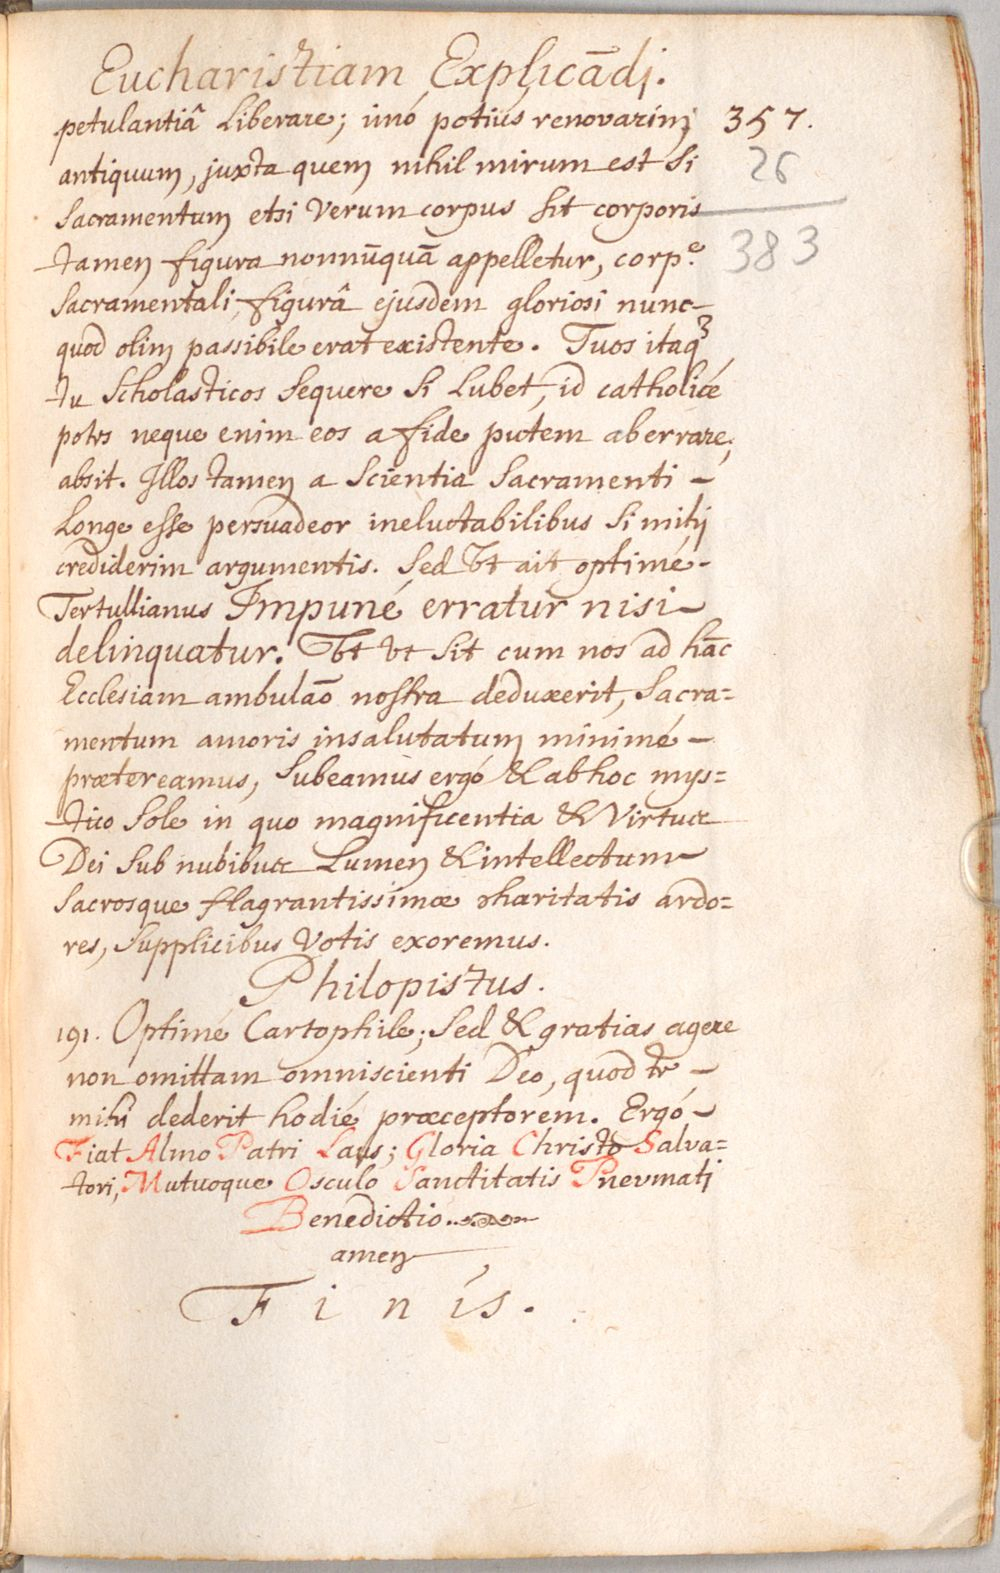 Eucharistiam Explicādi.
petulantiâ Liberare; imó potiús renovarim 357.
antiquum, juxta quem nihil mirum est si 26
Sacramentum etsi Verum corpus sit corporis
tamen figura nonnūquā appelletur, corp.e 383
Sacramentali, figurâ ejusdem gloriosi nunc-
quod olim passibile erat existente. Tuos itaq3
tu Scholasticos Sequere Si Lubet, id catholicé
potes neque enim eos a fide putem aberrare;
absit. Illos tamen a Scientia Sacramenti -
Longe esse persuadeor ineluctabilibus Si mihi
crediderim argumentis. Sed Vt ait optimé-
Tertullianus Impuné erratur nisi-
delinquatur. Vt Vt Sit cum nos ad hāc
Ecclesiam ambulaō nostra deduxerit, Sacra=
mentum amoris insalutatum minimé -
prætereamus, Subeamus ergó & ab hoc mys=
tico Sole in quo magnificentia & Virtus
Dei Sub nubibus Lumen & intellectum
Sacrosque flagrantissimæ charitatis ardo=
res, Supplicibus Votis exoremus.
Philopistus.
191. Optimé Cartophile; Sed & gratias agere
non omittam omniscienti Deo, quod te -
mihi dederit hodié præceptorem. Ergó-
Fiat Almo Patri Laus; Gloria Christo Salva=
tori, Mutuoque Osculo Sanctitatis Pnevmati
Benedictio.
amen
Finis.